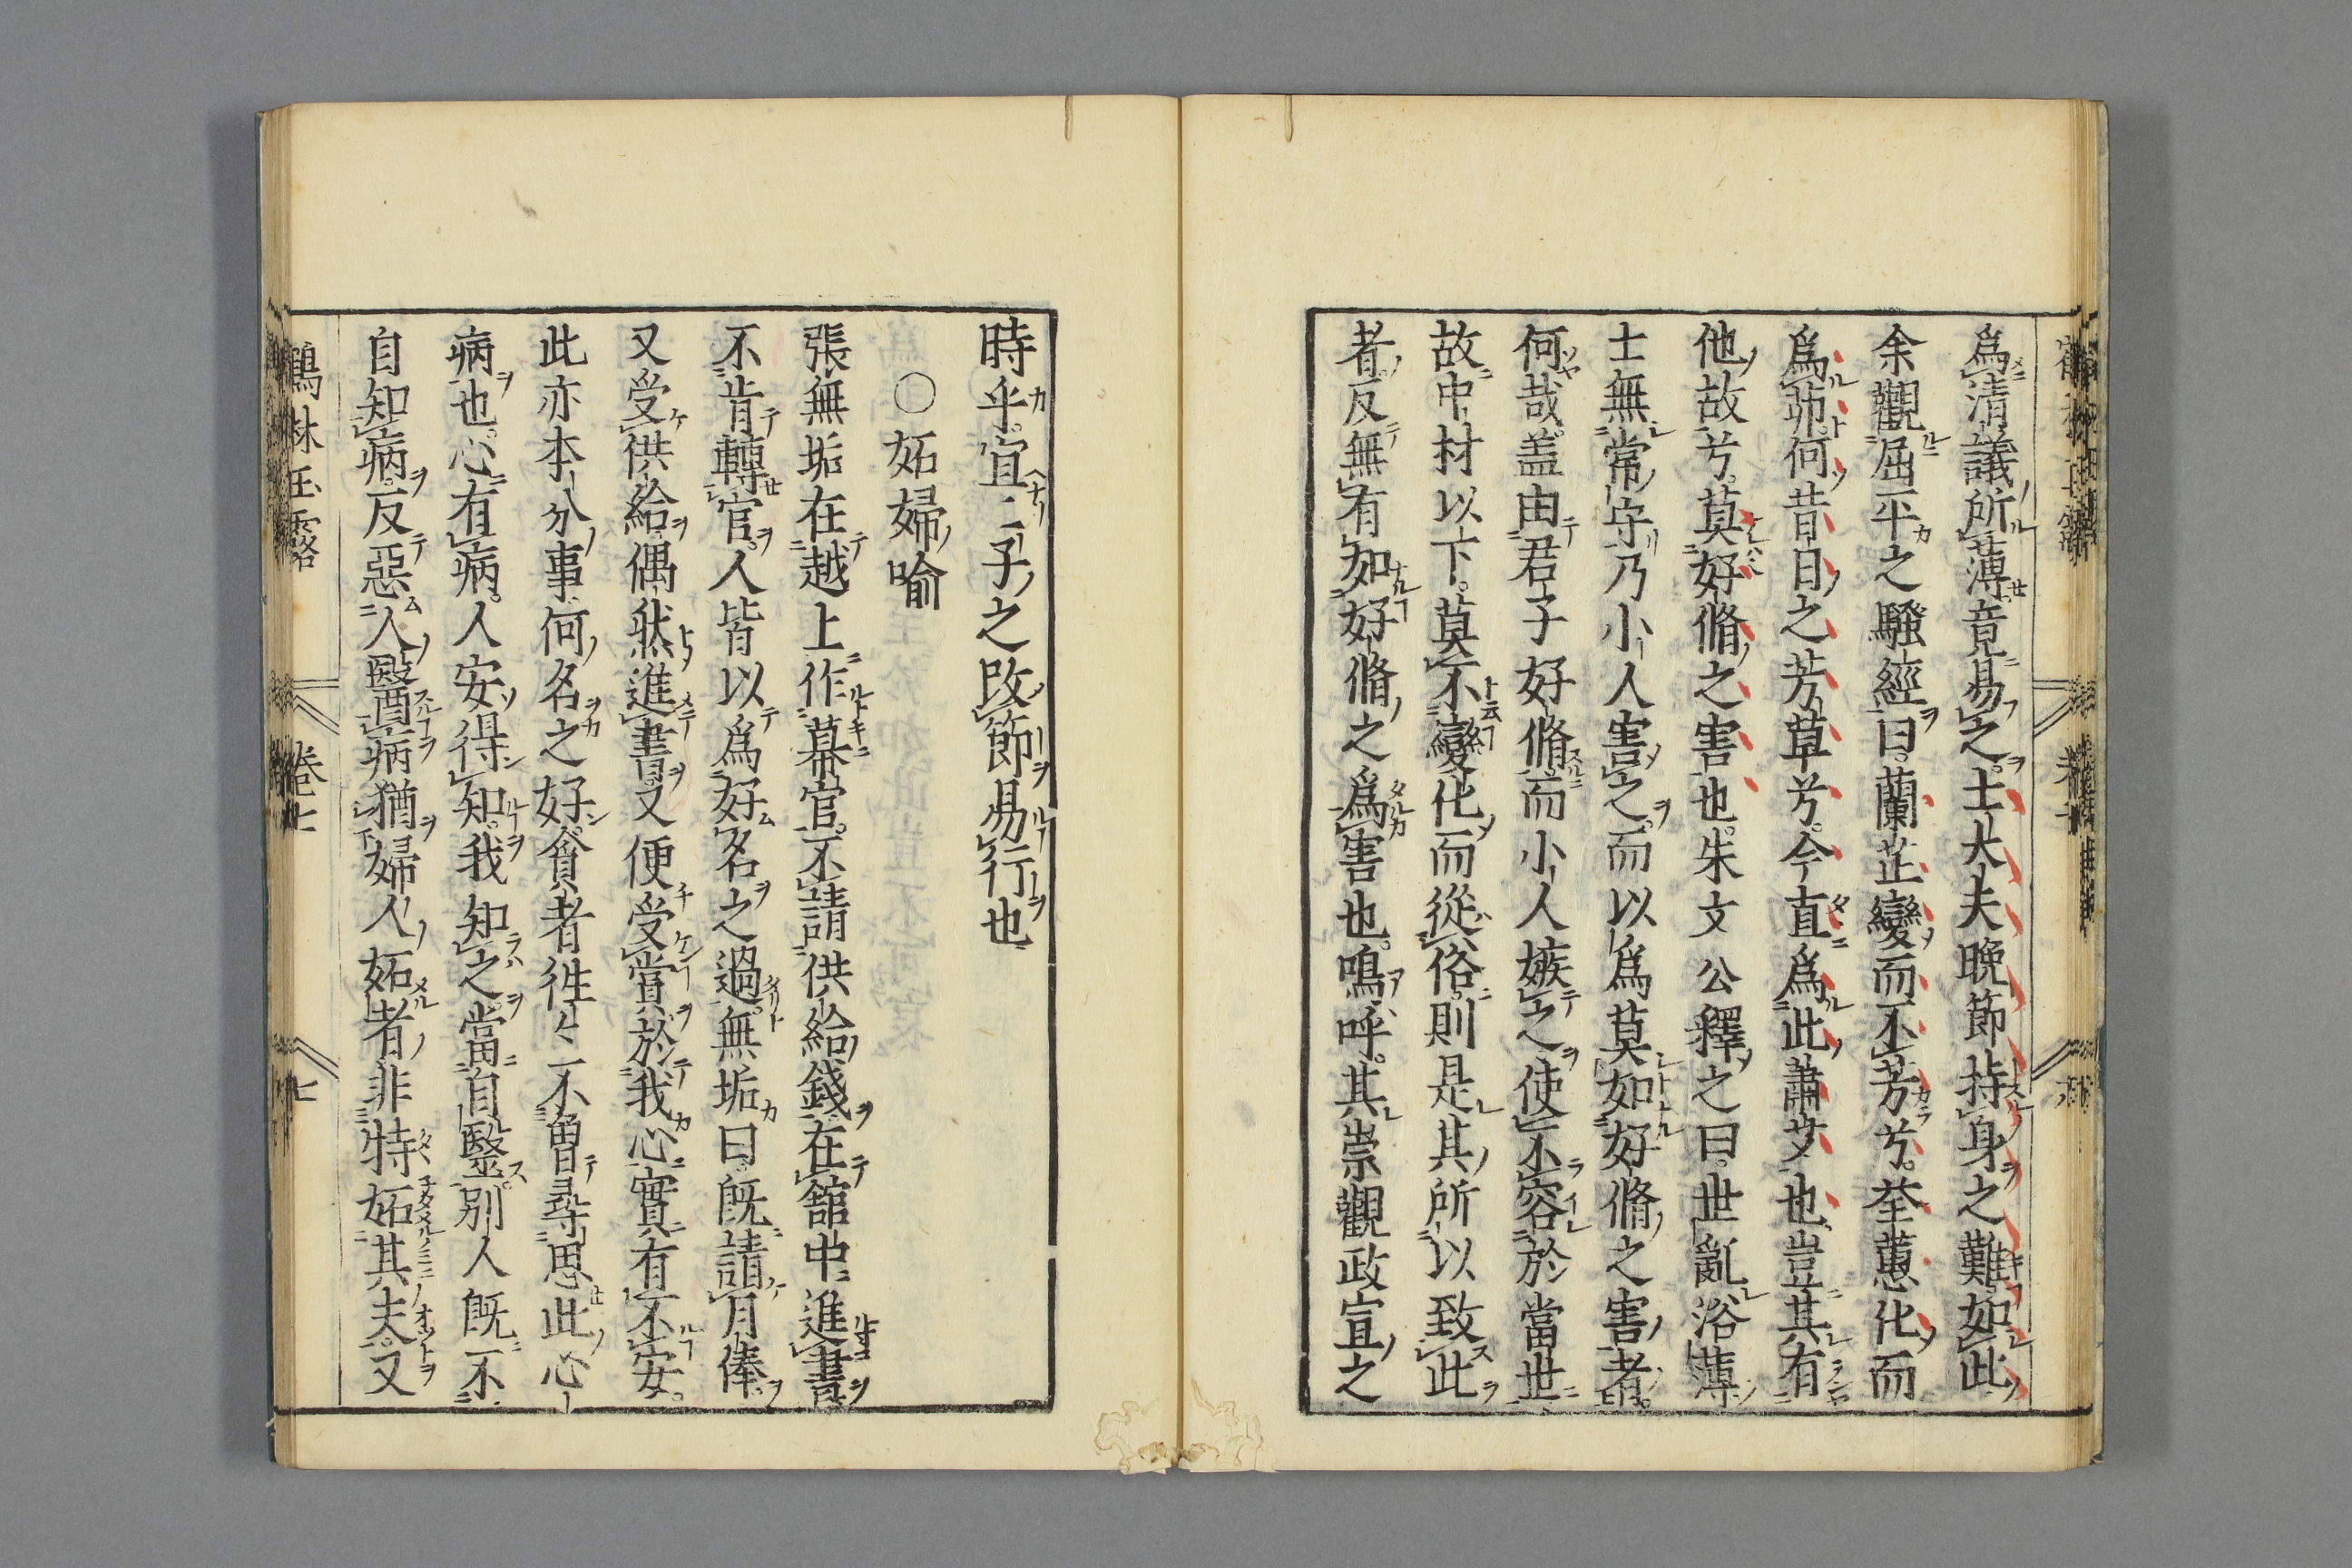 爲清議所薄竟易之士大夫晩節持身之難如此
余觀屈平之騷經曰蘭芷變而不芳兮荃蕙化而
爲茆何昔日之芳草兮今直爲此蕭艾也豈其有
他故兮莫好脩之害也朱文公釋之曰世亂俗薄
士無常守乃小人害之而以爲莫如好脩之害者
何哉盖由君子好脩而小人嫉之使不容於當世
故中材以下莫不變化而從俗則是其所以致此
者反無有如好脩之爲害也嗚呼其崇觀政宣之
時乎宜二子之改節易行也
○妬婦喻
張無垢在越上作幕官不請供給錢在舘中進書
不肯轉官人皆以爲好名之過無垢曰既請月俸
又受供給偶然進書又便受賞於我心實有不安
此亦本分事何名之好貪者徃〻不曽尋思此心
病也心有病人安得知我知之當自毉別人既不
自知病反惡人醫病猶婦人妬者非特妬其夫又
鶴林玉露　卷七　七